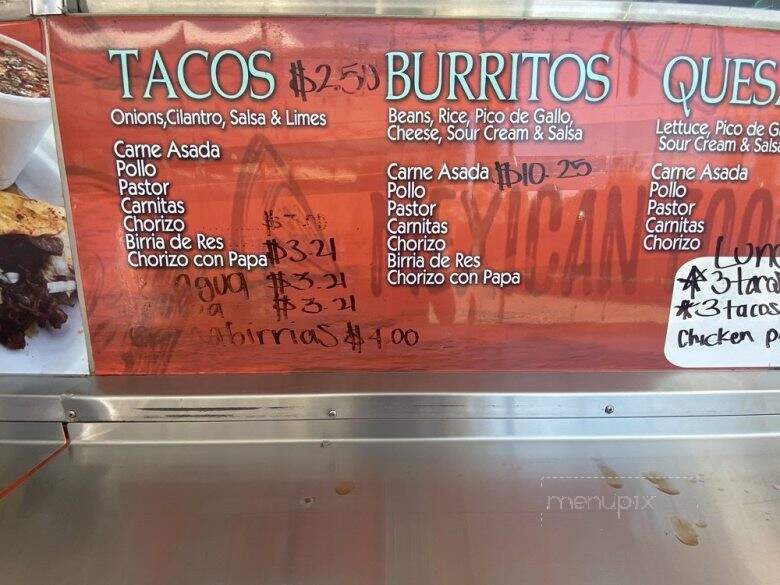 TACOS $2.50
Onions,Cilantro, Salsa & Limes
Carne Asada
Pollo
Pastor
Carnitas
Chorizo
Birria de Res $3.21
Chorizo con Papa
$3.21
$3.21
$4.00
BURRITOS
Beans, Rice, Pico de Gallo,
Cheese, Sour Cream & Salsa
Carne Asada $10.25
Pollo
Pastor
Carnitas
Chorizo
Birria de Res
Chorizo con Papa
MEXICAN
QUES
Lettuce, Pico de G
Sour Cream & Salsa
Carne Asada
Pollo
Pastor
Carnitas
Chorizo
3 tacos
Chicken
menupix